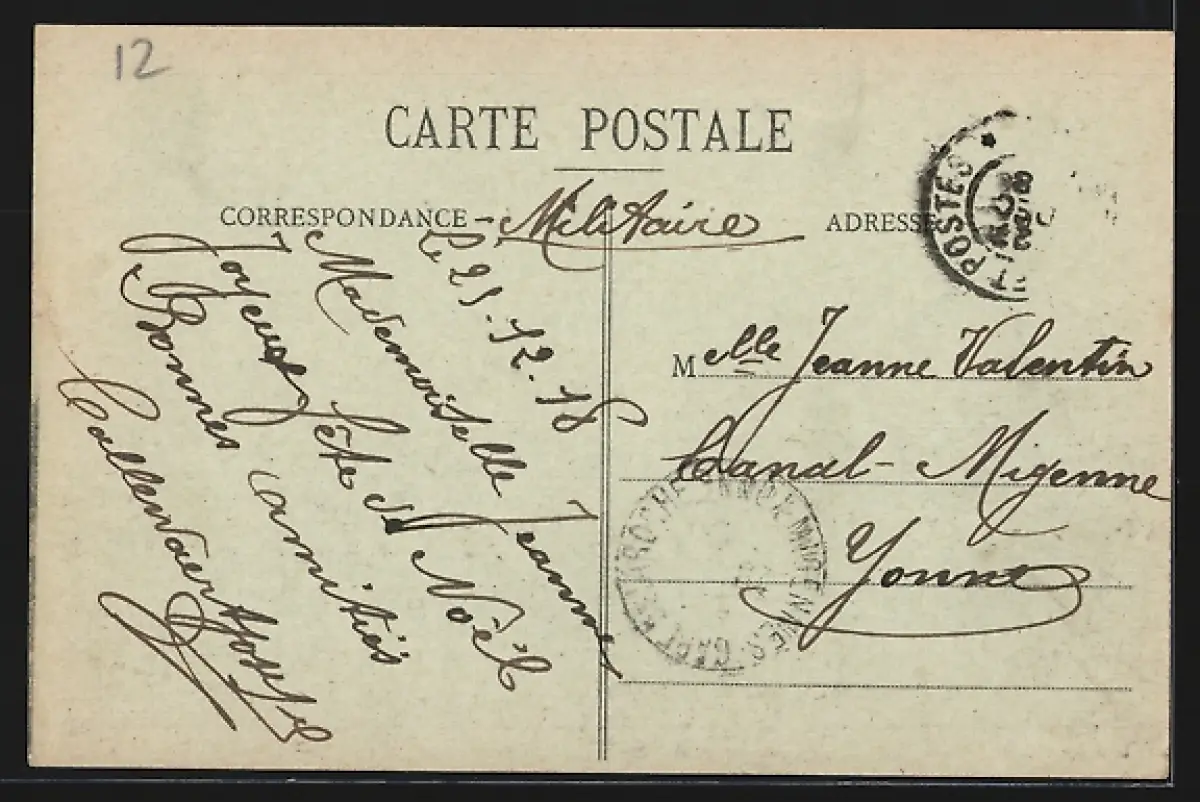 12
CARTE POSTALE
CORRESPONDANCE - Militaire
ADRESSE
T POSTES *
Le 25.12.18
Mademoiselle Jeanne
Joyeuse fête de Noël
Bonnes amitiés
Melle Jeanne Valentin
Canal - Migenne
Yonne